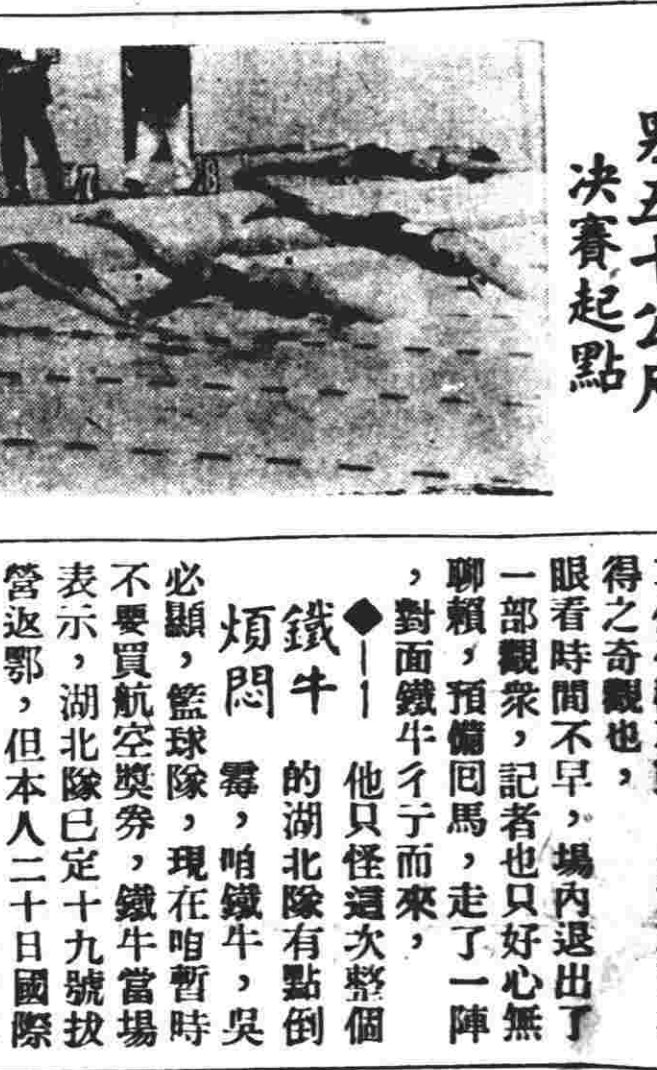 男五十公尺
決賽起點
得之奇觀也，
眼看時間不早，場內退出了
一部觀衆，記者也只好心無
聊賴，預備囘馬，走了一陣
，對面鐵牛彳亍而來，
鐵牛
煩悶
他只怪這次整個
的湖北隊有點倒
霉，咱鐵牛，吳
必顯，籃球隊，現在咱暫時
不要買航空獎券，鐵牛當場
表示，湖北隊已定十九號拔
營返鄂，但本人二十日國際
7
8